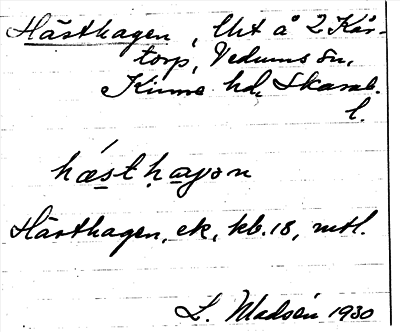 Hästhagen, lht å 2 Kår-
torp, Vedums sn,
Kinne hd, Skarab.
l.
hǽsthagən
Hästhagen, ek, kb. 18, mtl.
L. Madsén 1930